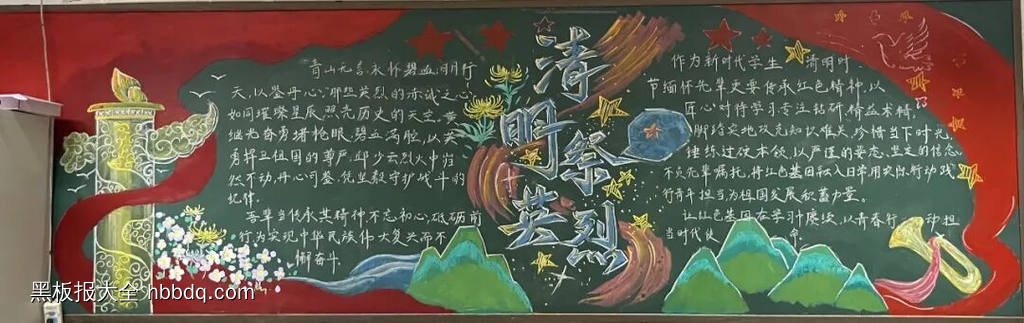 清明祭英烈
青山无言,永怀碧血,明月行
天,以鉴丹心,那些英烈的赤诚之心,
如同璀璨星辰,照亮历史的天空,黄
继光奋勇堵枪眼,碧血满腔,以英
勇捍卫祖国的尊严,邱少云烈火中岿
然不动,丹心可鉴,凭坚毅守护战斗的
纪律。
吾辈当传承其精神,不忘初心,砥砺前
行,为实现中华民族伟大复兴而不
懈奋斗
作为新时代学生 清明时
节缅怀先辈更要传承红色精神,以
匠心对待学习专注钻研,精益求精,
脚踏实地攻克知识难关,珍惜当下时光,
锤练过硬本领,以严谨的姿态,坚定的信念,
不负先辈嘱托,将红色基因融入日常用实际行动践
行青年担当,为祖国发展积蓄力量。
让红色基因在学习赓续,以青春行动担
当时代使命
黑板报大全 hbbdq.com